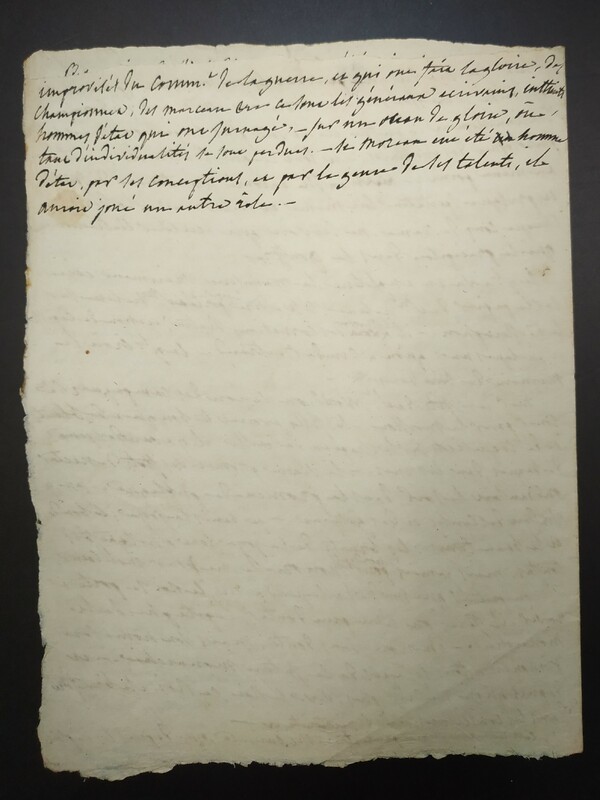 improvisés du Comm.t de la guerre, et qui ont fait la gloire, des
championnet, des marceau &c ce sont les généraux ecrivains,
hommes d'etat qui ont surnagé, – sur un ocean de gloire, où
tant d'individualités se sont perdues. – si Moreau eut été un homme
d'etat, par ses conceptions, et par le genre de ses talents, il
auroit joué un autre role. –